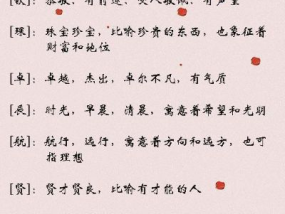 恭敬，有肖迎，受人敬佩，有声望
[琛]：珠宝珍宝，比喻珍贵的东西，也象征着
财富和地位
[卓]：卓越，杰出，卓尔不凡，有气质
[辰]：时光，早晨，清晨，寓意着希望和光明
[航]：航行，远行，寓意着方向和远方，也可
指理想
[贤]：贤才贤良，比喻有才能的人